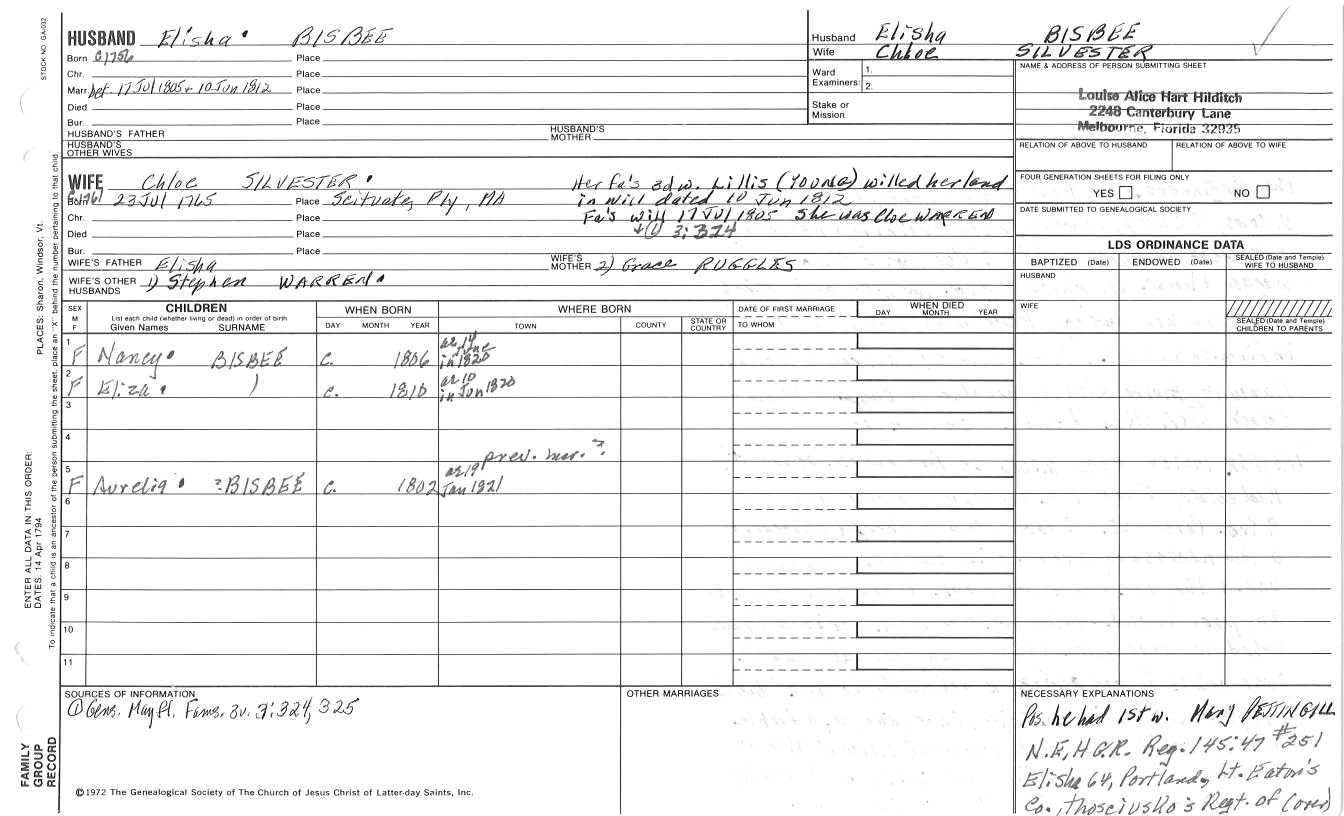 STOCK NO. GA-032
HUSBAND Elisha BISBEE
Born C1756 Place
Chr. Place
Marr. bet. 17 Jul 1805 + 10 Jun 1812 Place
Died Place
Bur. Place
HUSBAND'S FATHER HUSBAND'S MOTHER
HUSBAND'S OTHER WIVES
Husband Elisha BISBEE
Wife Chloe SILVESTER
Ward Examiners: 1.
2.
Stake or Mission
NAME & ADDRESS OF PERSON SUBMITTING SHEET
Louise Alice Hart Hilditch
2248 Canterbury Lane
Melbourne, Florida 32935
RELATION OF ABOVE TO HUSBAND RELATION OF ABOVE TO WIFE
FOUR GENERATION SHEETS FOR FILING ONLY
YES NO
DATE SUBMITTED TO GENEALOGICAL SOCIETY
WIFE Chloe SILVESTER
23 Jul 1765 Place Scituate, Ply, MA
Chr. Place
Died Place
Bur. Place
Her fa's 3d w. Lillis (YOUNG) willed her land
in will dated 10 Jun 1812
Fa's will 17 Jul 1805 She was Cloe WARREN
3: 324
WIFE'S FATHER Elisha WIFE'S MOTHER 2) Grace RUGGLES
WIFE'S OTHER HUSBANDS 1) Stephen WARREN
LDS ORDINANCE DATA
BAPTIZED (Date) ENDOWED (Date) SEALED (Date and Temple) WIFE TO HUSBAND
HUSBAND
WIFE
SEALED (Date and Temple) CHILDREN TO PARENTS
SEX M F
CHILDREN
List each child (whether living or dead) in order of birth
Given Names SURNAME
WHEN BORN
DAY MONTH YEAR
WHERE BORN
TOWN COUNTY STATE OR COUNTRY
DATE OF FIRST MARRIAGE
TO WHOM
WHEN DIED
DAY MONTH YEAR
1 F Nancy BISBEE c. 1806 ae 14 June in 1820
2 F Eliza ) c. 1810 ae 10 in Jun 1820
3
4
prev. mar. ?
5 F Aurelia ?BISBEE c. 1802 ae 19 Jan 1821
6
7
8
9
10
11
SOURCES OF INFORMATION
① Gens. Mayfl. Fams. 3v. 3: 324, 325
OTHER MARRIAGES
NECESSARY EXPLANATIONS
Pos. he had 1st w. Mary PETTINGILL
N.E.H.G.R. Reg. 145:47 #251
Elisha 64, Portland, Lt. Eaton's
Co., Thosciusko's Regt. of (over)
©1972 The Genealogical Society of The Church of Jesus Christ of Latter-day Saints, Inc.
FAMILY GROUP RECORD
ENTER ALL DATA IN THIS ORDER:
DATES: 14 Apr 1794
PLACES: Sharon, Windsor, Vt.
To indicate that a child is an ancestor of the person submitting the sheet, place an "X" behind the number pertaining to that child.